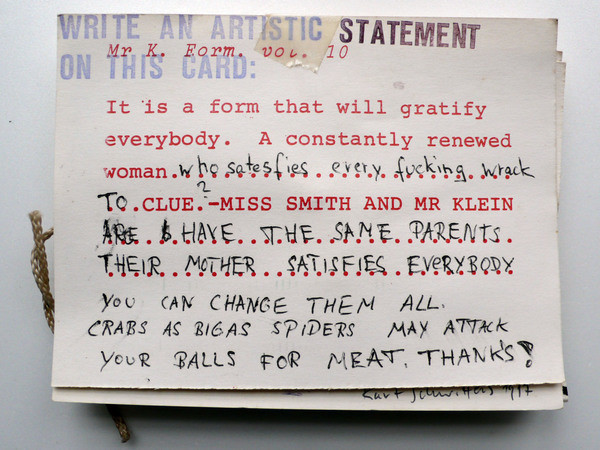 WRITE AN ARTISTIC STATEMENT
Mr K. Form. vol. 10
ON THIS CARD:
It is a form that will gratify
everybody. A constantly renewed
woman.who satesfies every fucking wrack
TO..CLUE.?-MISS SMITH AND MR KLEIN
HAVE THE SAME PARENTS
THEIR MOTHER SATISFIES EVERYBODY
YOU CAN CHANGE THEM ALL.
CRABS AS BIG AS SPIDERS MAY ATTACK
YOUR BALLS FOR MEAT. THANK'S!
Kurt Schwitters 1917